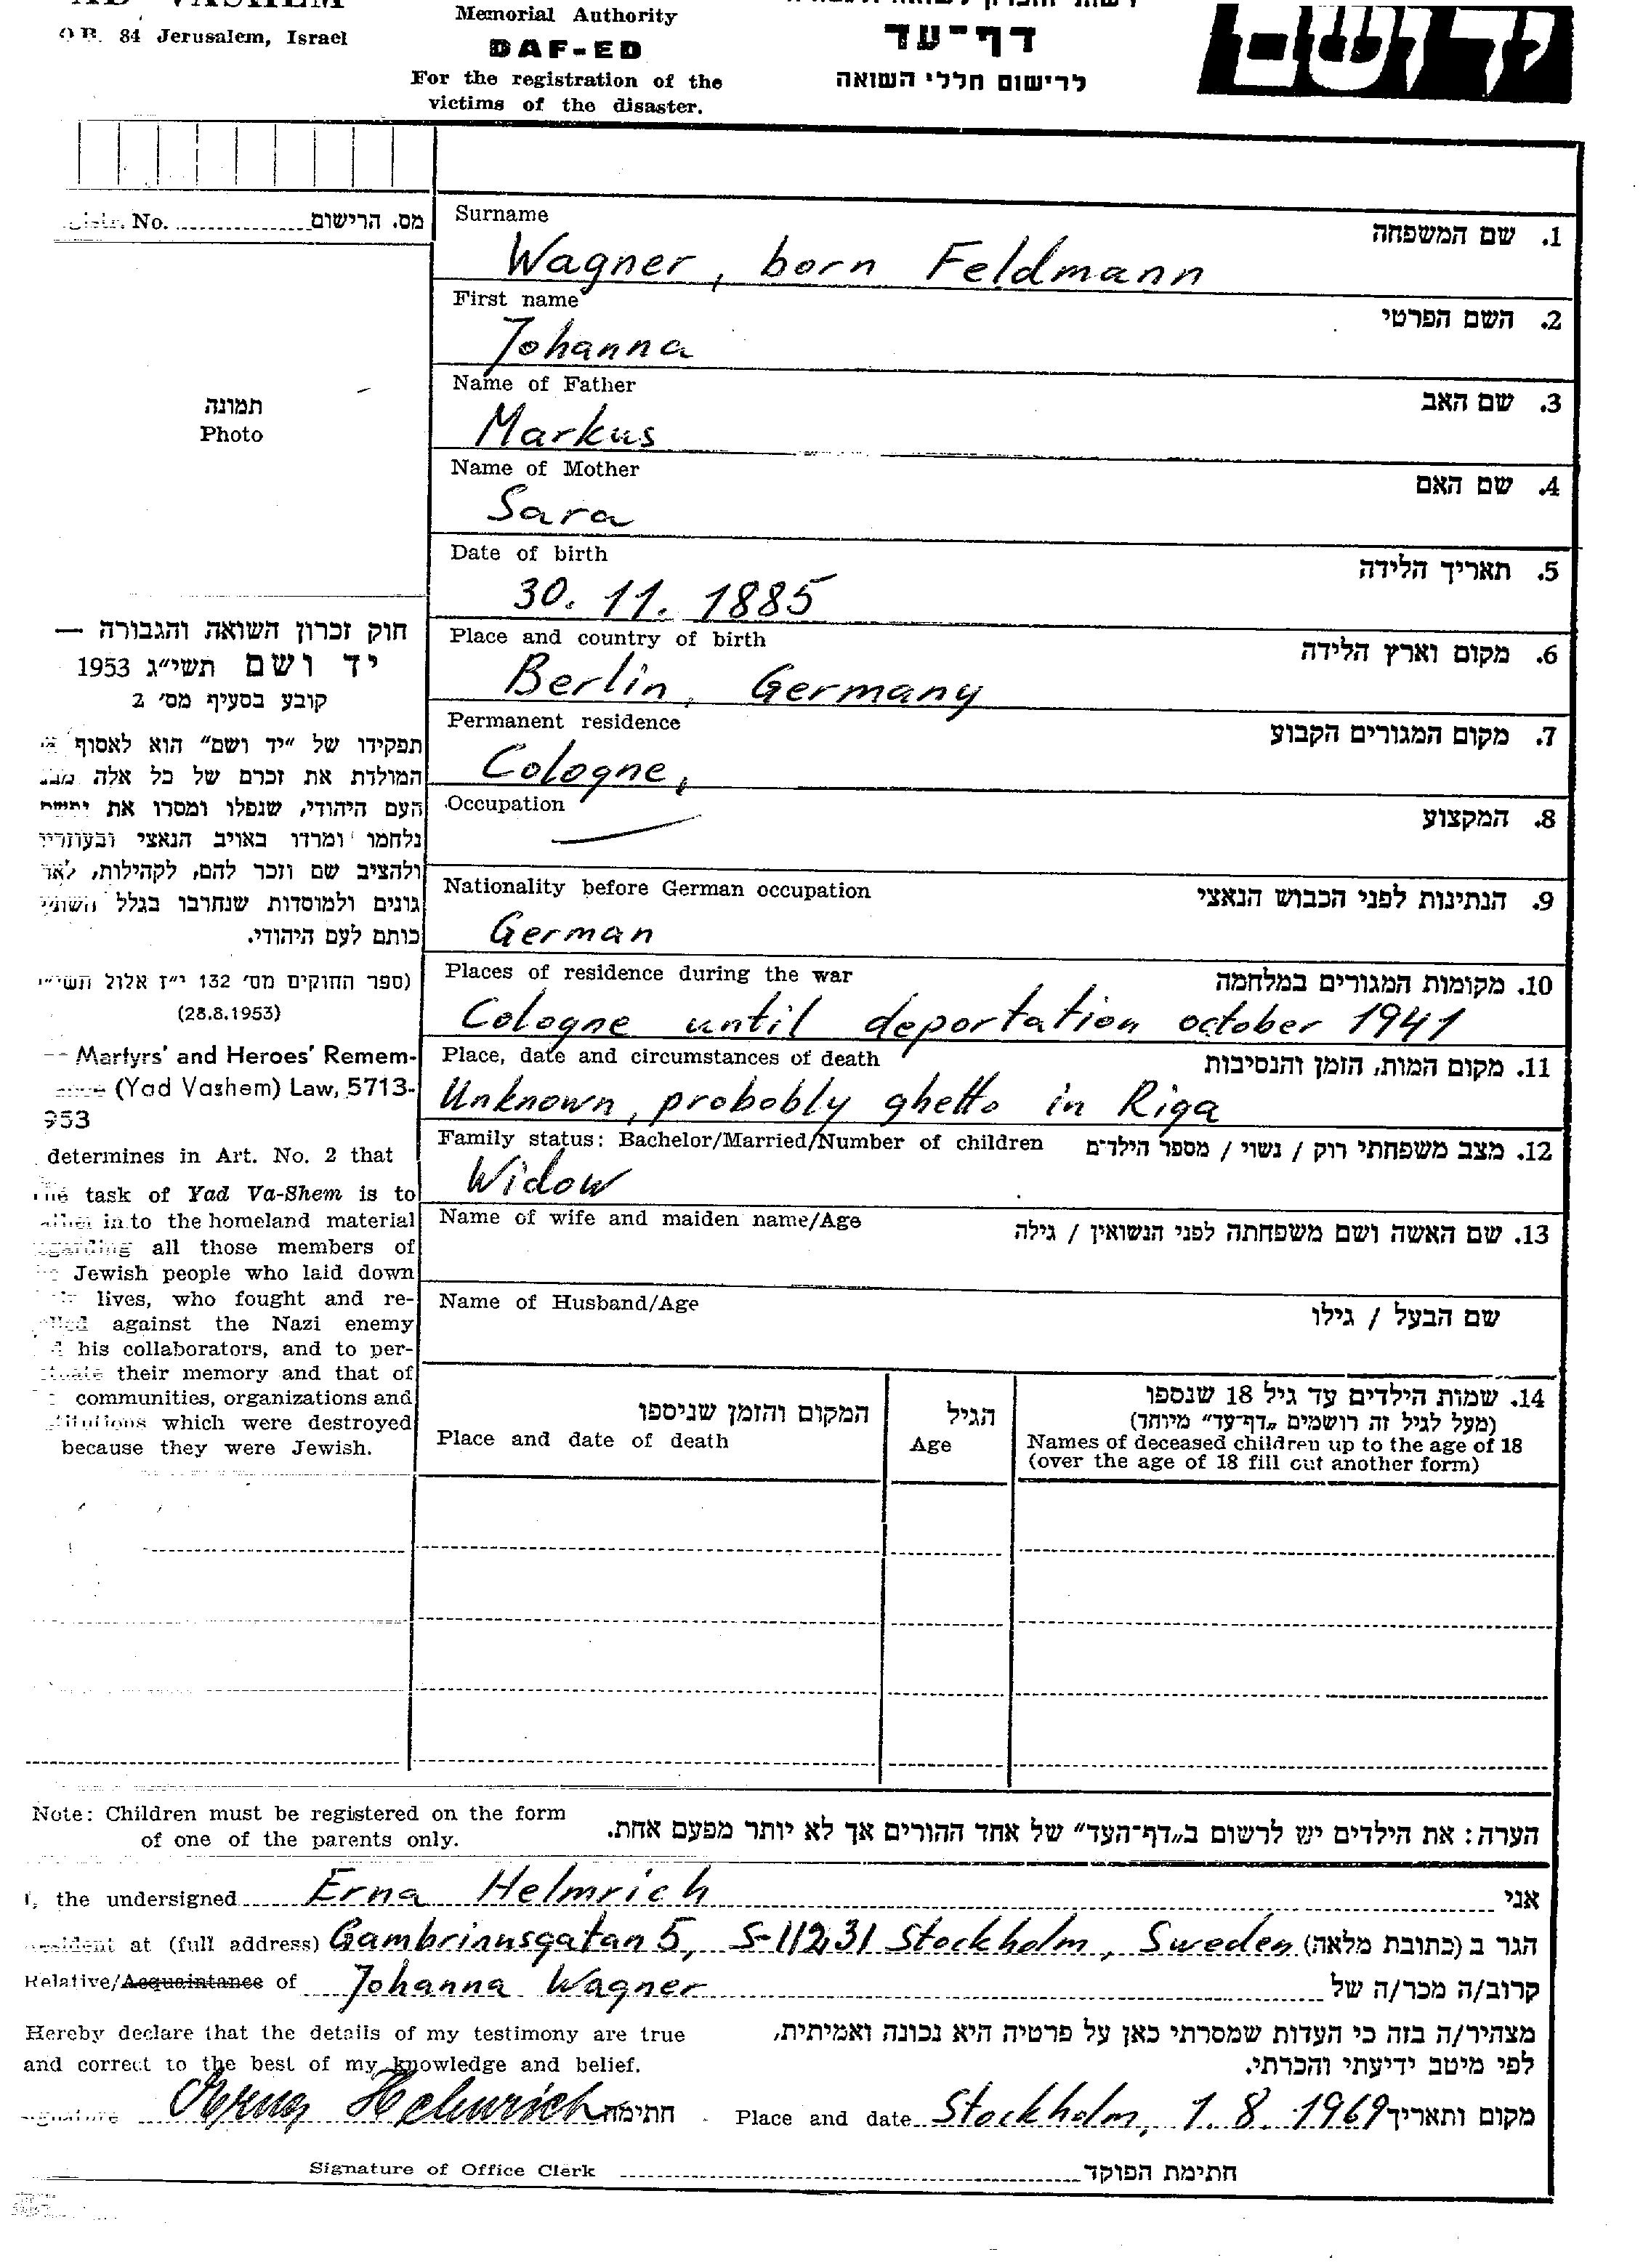 Memorial Authority
O.B. 84 Jerusalem, Israel
DAF-ED
דף־עד
For the registration of the
victims of the disaster.
לרישום חללי השואה
No. מס. הרישום
Surname 1. שם המשפחה
Wagner, born Feldmann
First name 2. השם הפרטי
Johanna
Name of Father 3. שם האב
Markus
Name of Mother 4. שם האם
Sara
Date of birth 5. תאריך הלידה
30. 11. 1885
Place and country of birth 6. מקום וארץ הלידה
Berlin, Germany
Permanent residence 7. מקום המגורים הקבוע
Cologne,
Occupation 8. המקצוע
Nationality before German occupation 9. הנתינות לפני הכבוש הנאצי
German
Places of residence during the war 10. מקומות המגורים במלחמה
Cologne until deportation october 1941
Place, date and circumstances of death 11. מקום המות, הזמן והנסיבות
Unknown, probobly ghetto in Riga
Family status: Bachelor/Married/Number of children 12. מצב משפחתי רוק / נשוי / מספר הילדים
Widow
Name of wife and maiden name/Age 13. שם האשה ושם משפחתה לפני הנשואין / גילה
Name of Husband/Age שם הבעל / גילו
14. שמות הילדים עד גיל 18 שנספו
(מעל לגיל זה רושמים „דף־עד" מיוחד)
Names of deceased children up to the age of 18
(over the age of 18 fill out another form)
הגיל
Age
המקום והזמן שניספו
Place and date of death
תמונה
Photo
חוק זכרון השואה והגבורה —
יד ושם תשי״ג 1953
קובע בסעיף מס׳ 2
תפקידו של "יד ושם" הוא לאסוף
המולדת את זכרם של כל אלה
העם היהודי, שנפלו ומסרו את
נלחמו ומרדו באויב הנאצי
ולהציב שם וזכר להם, לקהילות,
גונים ולמוסדות שנחרבו בגלל
כותם לעם היהודי.
(ספר החוקים מס׳ 132 י״ז אלול
(28.8.1953)
Martyrs' and Heroes' Remem-
(Yad Vashem) Law, 5713-
953
determines in Art. No. 2 that
task of Yad Va-Shem is to
in to the homeland material
all those members of
Jewish people who laid down
lives, who fought and re-
against the Nazi enemy
his collaborators, and to per-
their memory and that of
communities, organizations and
which were destroyed
because they were Jewish.
Note: Children must be registered on the form
of one of the parents only.
הערה: את הילדים יש לרשום ב„דף־העד" של אחד ההורים אך לא יותר מפעם אחת.
I, the undersigned Erna Helmrich אני
at (full address) Gambrinusgatan 5, S-11231 Stockholm, Sweden הגר ב (כתובת מלאה)
Relative/Acquaintance of Johanna Wagner קרוב/ה מכר/ה של
Hereby declare that the details of my testimony are true
and correct to the best of my knowledge and belief.
מצהיר/ה בזה כי העדות שמסרתי כאן על פרטיה היא נכונה ואמיתית,
לפי מיטב ידיעתי והכרתי.
Erna Helmrich חתימה Place and date Stockholm, 1. 8. 1969 מקום ותאריך
Signature of Office Clerk חתימת הפוקד